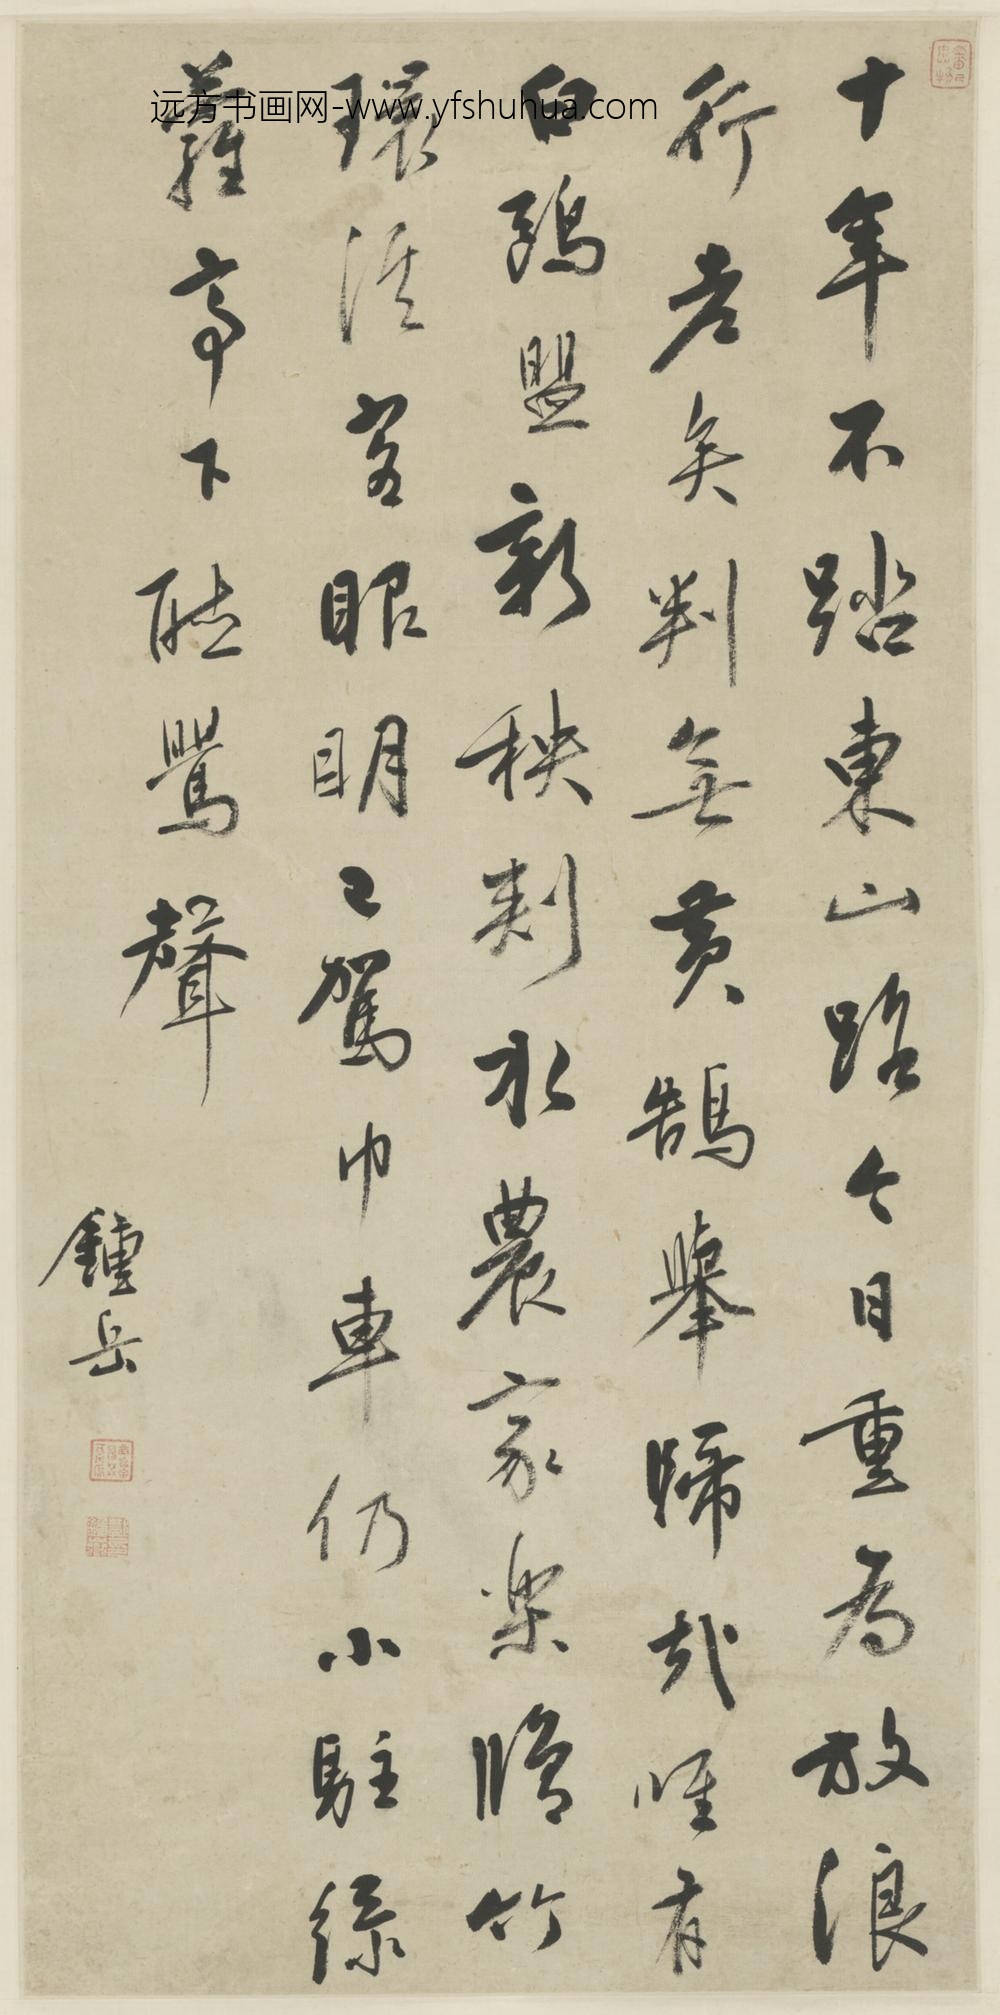 十年不踏東山路今日重為放浪
行老矣判無黃鵠舉歸哉唯有
白鷗盟新秧刺水農家樂脩竹
環溪客眼明已駕巾車仍小駐綠
蘿亭下聽鶯聲
鍾岳
远方书画网-www.yfshuhua.com